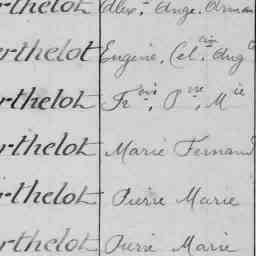 rthelot Alex. Ange. Arman
rthelot Eugénie, Cel.ine Aug
rthelot Fr.ois, P.rre, M.ie
rthelot Marie Fernand
rthelot Pierre Marie
rthelot Pierre Marie